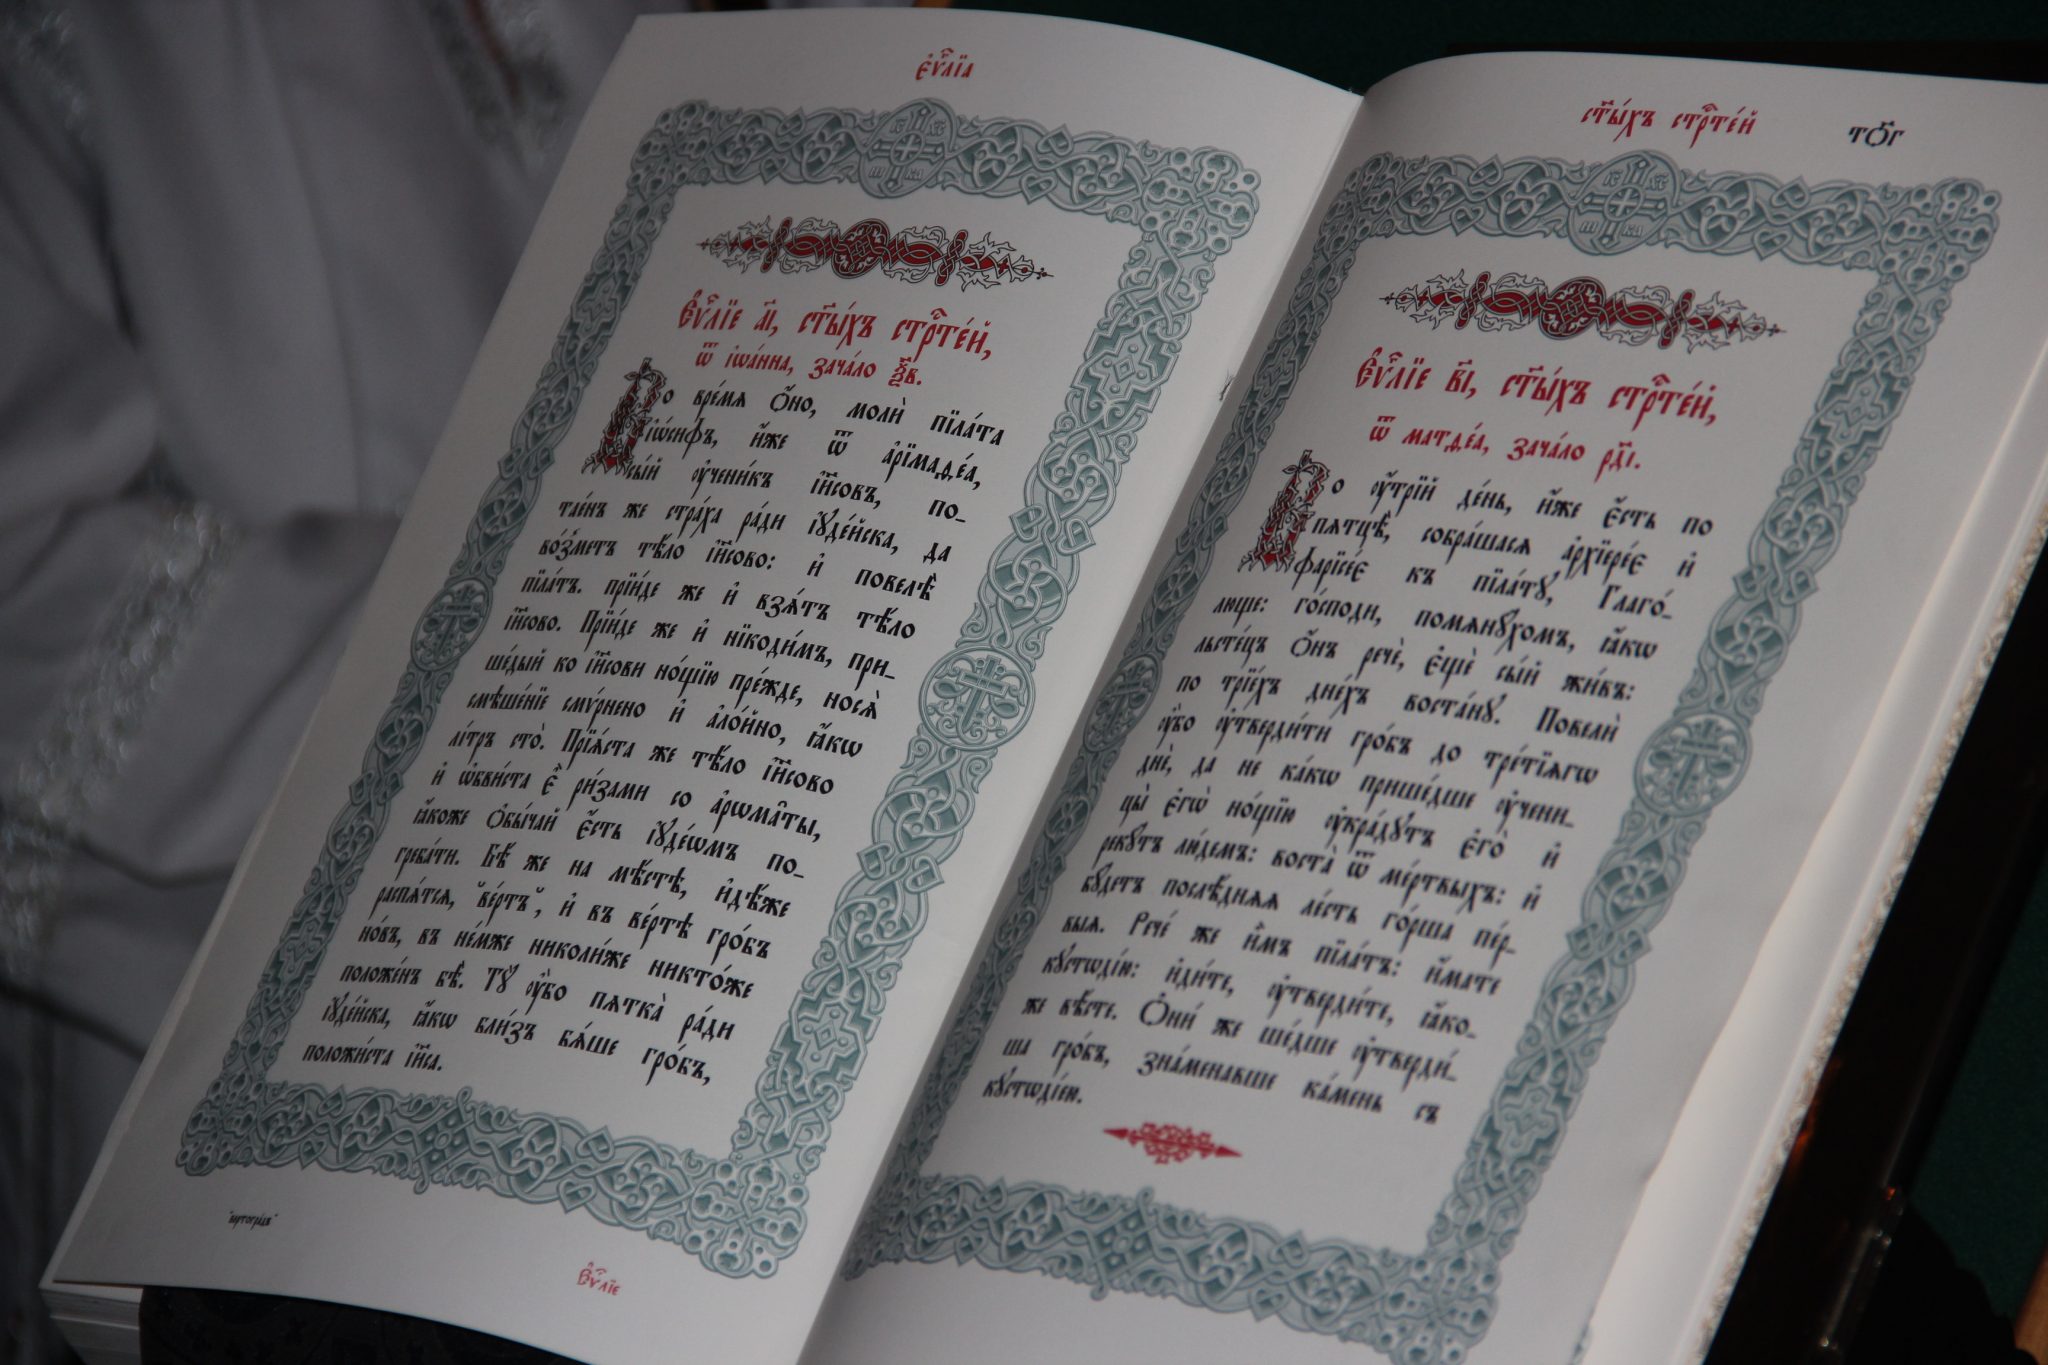 Е҆ѵⷢ҇лїѧ
Е҆ѵⷢ҇лїе а҃і, ст҃ы́хъ стрⷭ҇те́й,
ѿ і҆ѡа́нна, зача́ло ѯ҃в.
Во вре́мѧ ѻ҆́но, молѝ піла́та
і҆ѡ́сифъ, и҆́же ѿ а҆рїмаѳе́а,
сы́й ᲂу҆чени́къ і҆и҃совъ, по-
тае́нъ же стра́ха ра́ди і҆ꙋде́йска, да
во́зметъ тѣ́ло і҆и҃сово: и҆ повелѣ̀
піла́тъ. прїи́де же и҆ взѧ́тъ тѣ́ло
і҆и҃сово. Прїи́де же и҆ нїкоди́мъ, при-
ше́дый ко і҆и҃сови но́щїю пре́жде, носѧ̀
смѣше́нїе смѵ́рнено и҆ а҆ло́йно, ꙗ҆́кѡ
лі́тръ сто̀. Прїѧ́ста же тѣ́ло і҆и҃сово
и҆ ѡ҆бви́ста є҆̀ ри́зами со а҆рѡма̑ты,
ꙗ҆́коже ѻ҆бы́чай є҆́сть і҆ꙋде́ѡмъ по-
греба́ти. Бѣ́ же на мѣ́стѣ, и҆дѣ́же
распѧ́тсѧ, ве́ртъ, и҆ въ ве́ртѣ гро́бъ
но́въ, въ не́мже николи́же никто́же
положе́нъ бѣ̀. Тꙋ̀ ᲂу҆̀бо пѧтка̀ ра́ди
і҆ꙋде́йска, ꙗ҆́кѡ бли́зъ бѧ́ше гро́бъ,
положи́ста і҆и҃са.
"вертогра́дъ"
Е҆ѵⷢ҇лїе
ст҃ы́хъ стрⷭ҇те́й то҃г
Е҆ѵⷢ҇лїе в҃і, ст҃ы́хъ стрⷭ҇те́й,
ѿ матѳе́а, зача́ло рд҃і.
Во ᲂу҆́трїй де́нь, и҆́же є҆́сть по
пѧтцѣ̀, собра́шасѧ а҆рхїере́є и҆
фарїсе́є къ піла́тꙋ, Глаго́-
люще: го́споди, помѧнꙋ́хомъ, ꙗ҆́кѡ
льсте́цъ ѻ҆́нъ речѐ, є҆щѐ сы́й жи́въ:
по трїе́хъ дне́хъ воста́нꙋ. Повелѝ
ᲂу҆̀бо ᲂу҆тверди́ти гро́бъ до тре́тїѧгѡ
днѐ, да не ка́кѡ прише́дше ᲂу҆чени-
цы̀ є҆гѡ̀ но́щїю ᲂу҆кра́дꙋтъ є҆го̀ и҆
рекꙋ́тъ лю́демъ: воста̀ ѿ ме́ртвыхъ: и҆
бꙋ́детъ послѣ́днѧѧ ле́сть го́рша пе́р-
выѧ. Рече́ же и҆̀мъ піла́тъ: и҆́мате
кꙋстѡді́ю: и҆ди́те, ᲂу҆тверди́те, ꙗ҆́ко-
же вѣ́сте. Ѻ҆ни́ же ше́дше ᲂу҆тверди́-
ша гро́бъ, зна́менавше ка́мень съ
кꙋстѡді́ею.